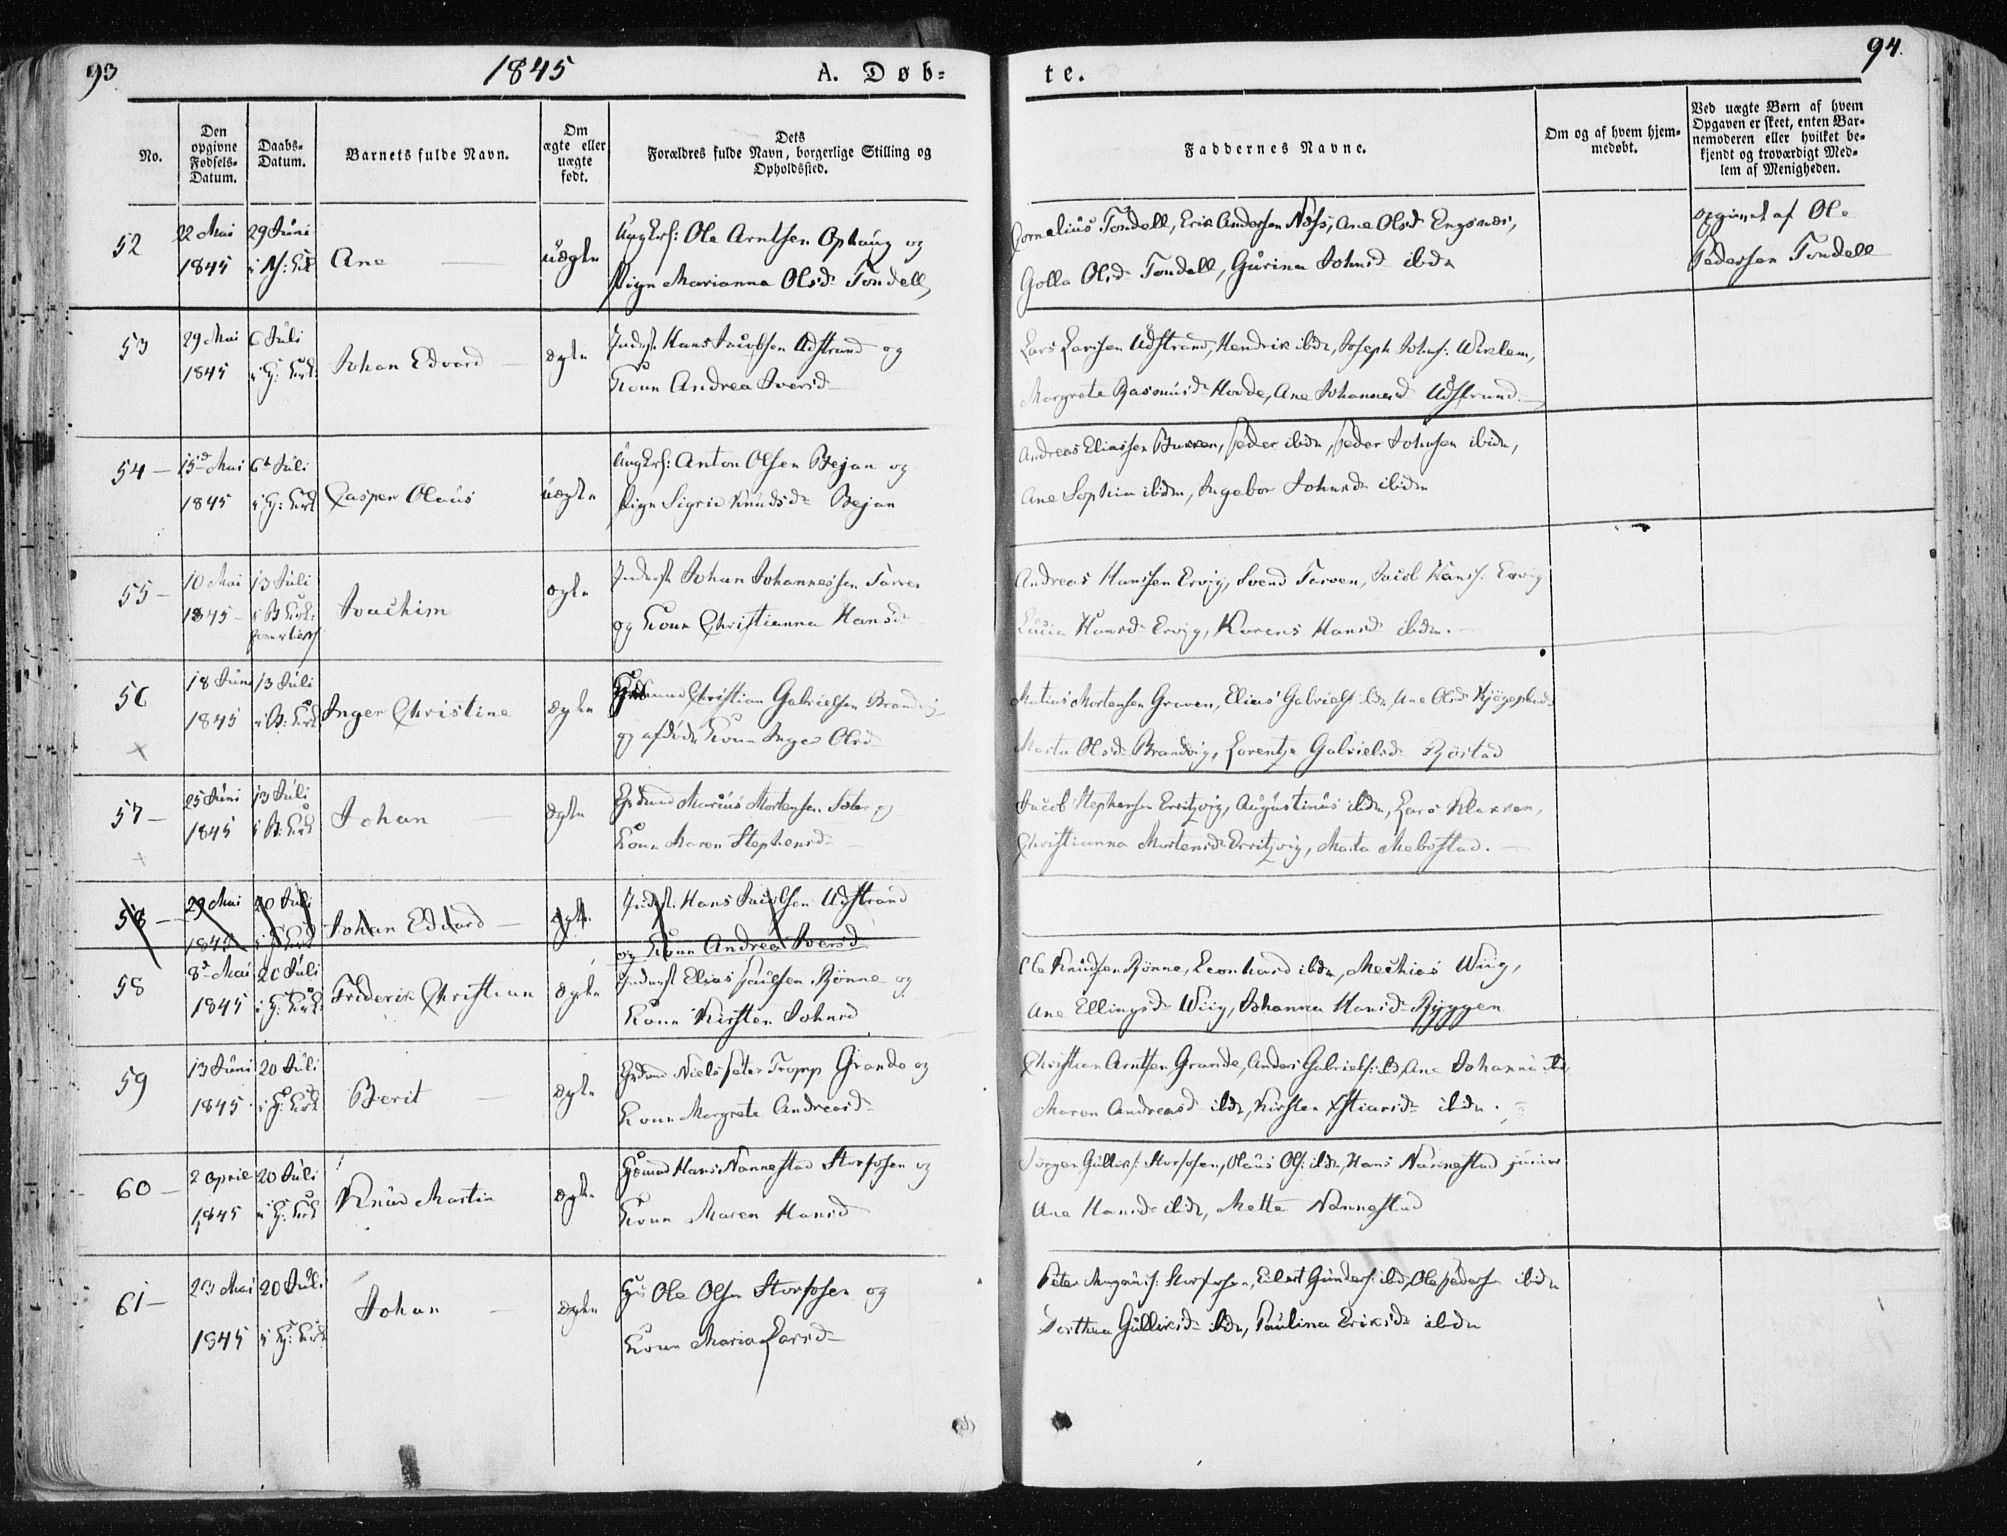 93.
1845
A. Døb-
te.
94.
No.
Den
opgivne
Fødsels-
Datum.
Daabs-
Datum.
Barnets fulde Navn.
Om
ægte eller
uægte
født.
Dets
Forældres fulde Navn, borgerlige Stilling og
Opholdssted.
Faddernes Navne.
Om og af hvem hjem-
medøbt.
Ved uægte Børn af hvem
Opgaven er skeet, enten Bar-
nemoderen eller hvilket be-
kjendt og troværdigt Med-
lem af Menigheden.
52
22 Mai
1845
29 Juni
Ane
uægte
Ungkrl: Ole Arntsen Ophaug og
Pige Marianna Olsd. Tondell
Cornelius Tondell, Erik Andersen Næss, Ane Olsd Engsnæs,
Golla Olsd. Tondell, Gurina Johnsd ibidn
opgivet af Ole
Pedersen Tondell
53
29 Mai
1845
6 Juli
i Ø: Kirk:
Johan Edvard
ægte
Inderst Hans Jacobsen Udstrand og
Kone Andrea Iversd
Lars Larssen Udstrand, Hendrik ibidn, Joseph Johns: Wiklem,
Margrete Rasmusd Hovde, Ane Johannesd Udstrand.
54 -
15d Mai
1845
6te Juli
i Ø: Kirk
Casper Olaus
uægte
Ungkrl: Anton Olsen Bejan og
Pige Sigrid Knudsd. Bejan
Andreas Eliassen Bukken, Peder ibidn, Peder Johnsen ibidn,
Ane Sophia ibidn, Ingebor Johnsd ibidn
55 -
10 Mai
1845 -
13 Juli
i B Kirk:
Joachim
ægte
Inderst Johan Johannessen Tarven
og Kone Christianna Hansd.
Andreas Hanssen Ervig, Svend Tarven, Jacob Hanss: Ervig
Lucia Hansd. Ervig, Karens Hansd ibidn.
56
18 Juni
1845
13 Juli
i B: Kirk
Inger Christine
ægte
Christian Gabrielsen Brandvig
og afdøde Kone Inger Olsd
Matias Mortensen Graven, Elias Gabriels ibdn Ane Olsd
Marta Olsd. Brandvig, Lorentze Gabrielsd. Røstad
57 -
25 Juni
1845
13 Juli
i B: Kirk
Johan
ægte
Grdmd Marius Mortensen Sæter og
Kone Maren Stephensd.
Jacob Stephensen Ervitzvig, Augustinus ibidn, Lars Klakken,
Christianna Mortensd. Ervitzvig, Marta Mebostad.
58 -
29 Mai
1845
20 Juli
i Ø Kirk
Johan Edvard -
ægte
Inderst: Hans Jacobsen Udstrand
og Kone Andrea Iversd
58
8d Mai
1845
20 Juli
i Ø: Kirk:
Friderik Christian
ægte
Inderst Elias Paulsen Rønne og
Kone Kirsten Johnsd
Ole Knudsen Rønne, Leonhard ibidn, Mechias Wiig,
Ane Ellingsd. Wiig, Johanna Hansd. Ryggen
59
13 Juni
1845
20 Juli
i Ø: Kirk
Berit
ægte
Grdmd Niels Peter Tropp Grande og
Kone Margrete Andreasd.
Christian Arntsen Grande, Anders Gabriels: ibd, Ane Johanna ibd,
Maren Andreasd ibidn, Kirsten Xstiansd. ibidn.
60 -
2 April
1845
20 Juli
i Ø: Kirk
Knud Martin
ægte
Hans Nannestad Storfosen og
Kone Maren Hansd
Jørgen Gulliks: Storfosen, Olaus Ols: ibdn, Hans Nannestad junior
Ane Hansd. ibdn, Mette Nannestad
61 -
23 Mai
1845
20 Juli
i Ø: Kirk
Johan
ægte
Ole Olsen Storfosen og
Kone Maria Larsd.
Peter Magnus: Storfosen, Eilert Gunders: ibd, Ole Pedersen ibidn
Dorthea Gulliksd. ibdn, Paulina Eriksd. ibidn